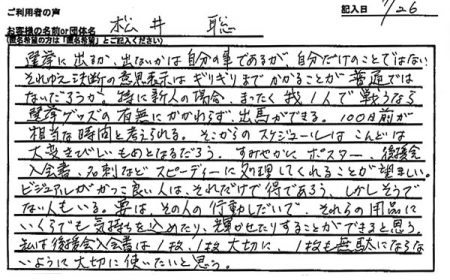 ご利用者の声
記入日 7/26
お客様の名前or団体名 松井 聡
(匿名希望の方は「匿名希望」とご記入ください)
選挙に出るか、出ないかは自分の事であるが、自分だけのことではない
それゆえ決断の意思表示はギリギリまでかかることが普通では
ないだろうか。特に新人の場合、まったく我1人で戦うなら
選挙グッズの有無にかかわらず、出馬ができる。100日前が
相当な時間と考えられる。そこからのスケジュールはこんどは
大変きびしいものとなるだろう。すみやかに ポスター、後援会
入会書、名刺などスピーディーに処理してくれることが望ましい。
ビジュアルがかっこ良い人は、それだけで得であろう、しかしそうで
ない人もいる。要は、その人の行動しだいで、それらの用品に
いくらでも気持ちを込めたり、輝かせたりすることができると思う。
私は後援会入会書は1枚、1枚大切に、1枚も無駄にならな
いように大切に使いたいと思う。